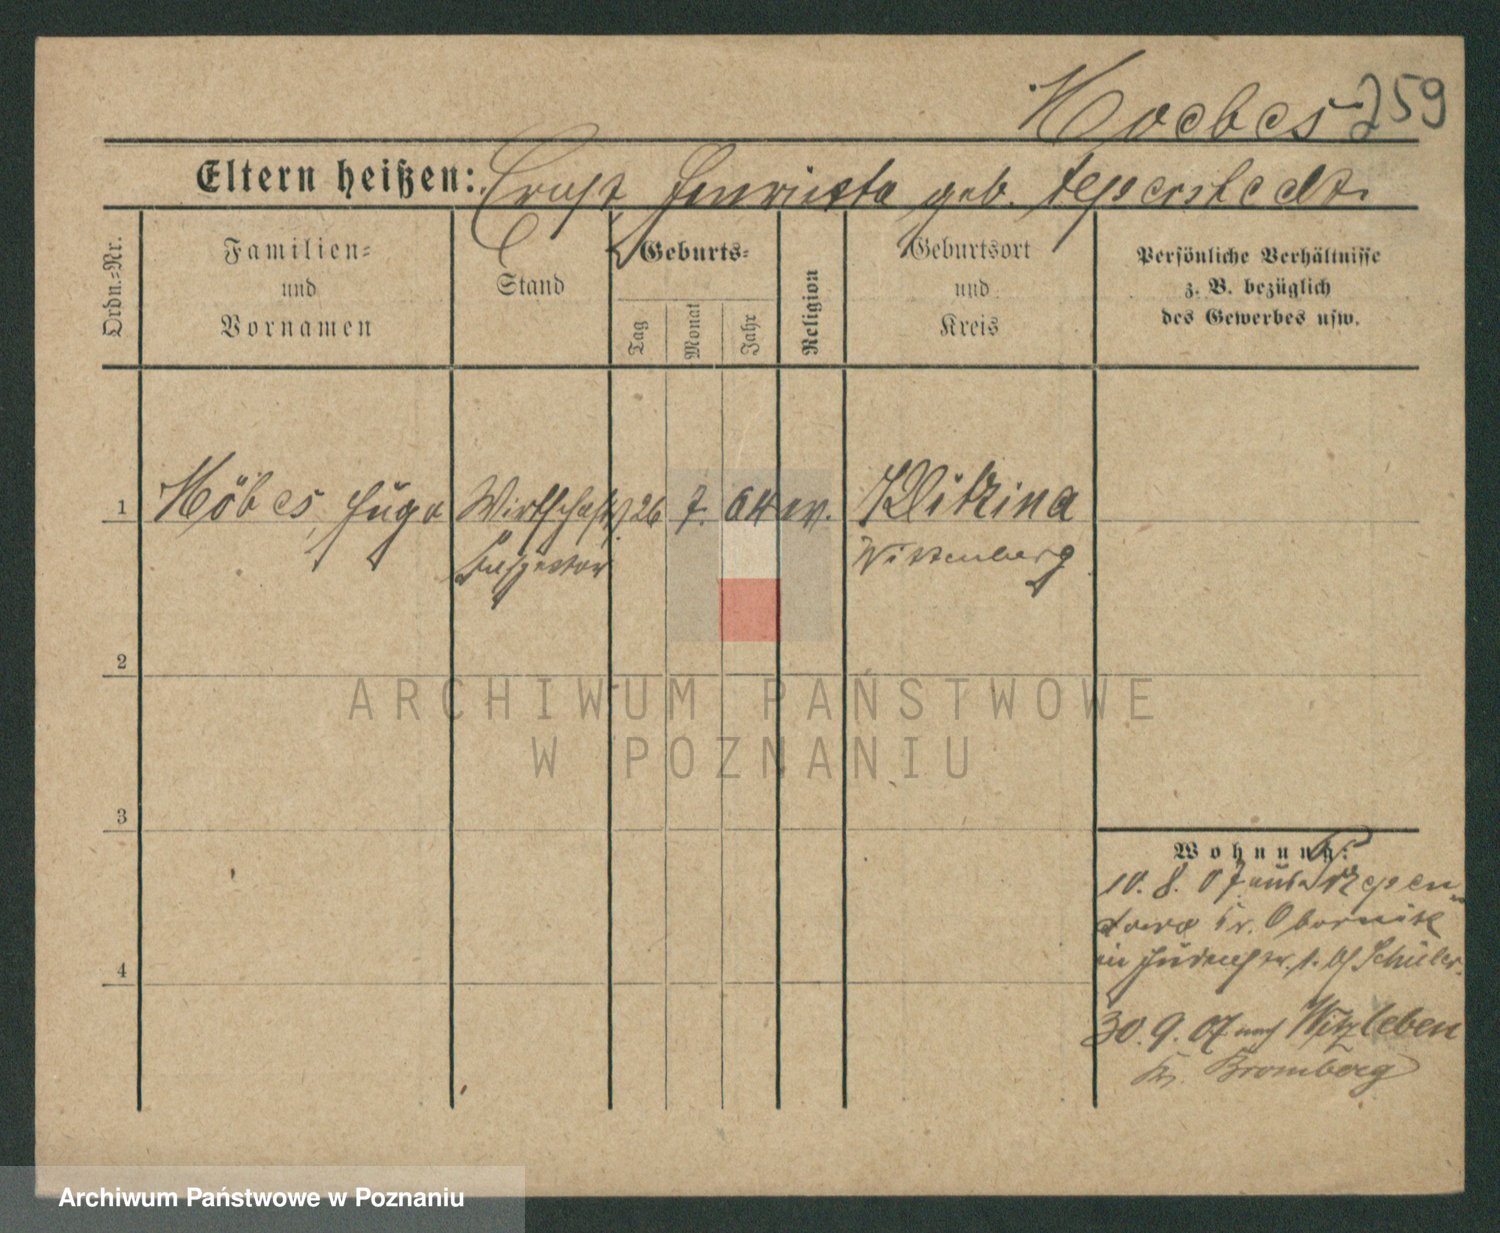 Moebes 259
Eltern heißen: Ernst Henrietta geb. Tepperstedt
Ordn.-Nr.
Familien-
und
Vornamen
Stand
Geburts-
Tag
Monat
Jahr
Religion
Geburtsort
und
Kreis
Persönliche Verhältnisse
z. B. bezüglich
des Gewerbes usw.
1 Möbes, Hugo Wirtschafts 26 7. 64 ev. Klitzina
Inspector Wittenberg
2
3
4
Wohnung:
10. 8. 07 aus
Kr. Obornik
in b/ Schüler
30. 9. 07 nach Witzleben
Kr. Bromberg
ARCHIWUM PAŃSTWOWE
W POZNANIU
Archiwum Państwowe w Poznaniu